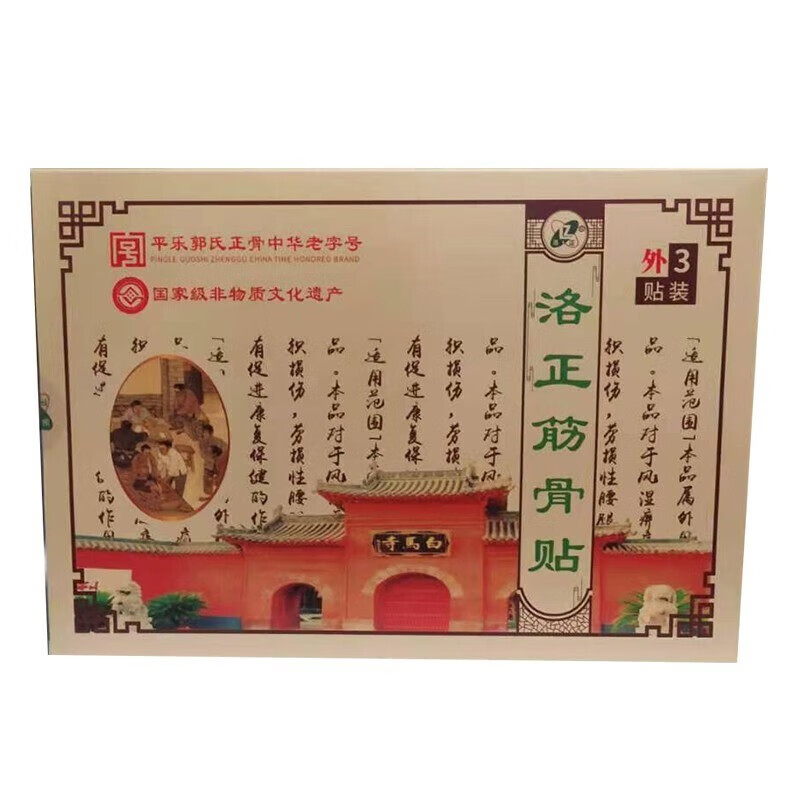 平乐郭氏正骨中华老字号
PINGLE GUOSHI ZHENGGU CHINA TIME HONORED BRAND
国家级非物质文化遗产
外3
贴装
洛正筋骨贴
「适用范围」本品属外
品。本品对于风湿痹
织损伤，劳损性腰腿
「适用范围」本
品。本品对于风
织损伤，劳损性腰
有促进康复保健的作
品。本品对于风
织损伤，劳损
有促进康复保
寺馬白